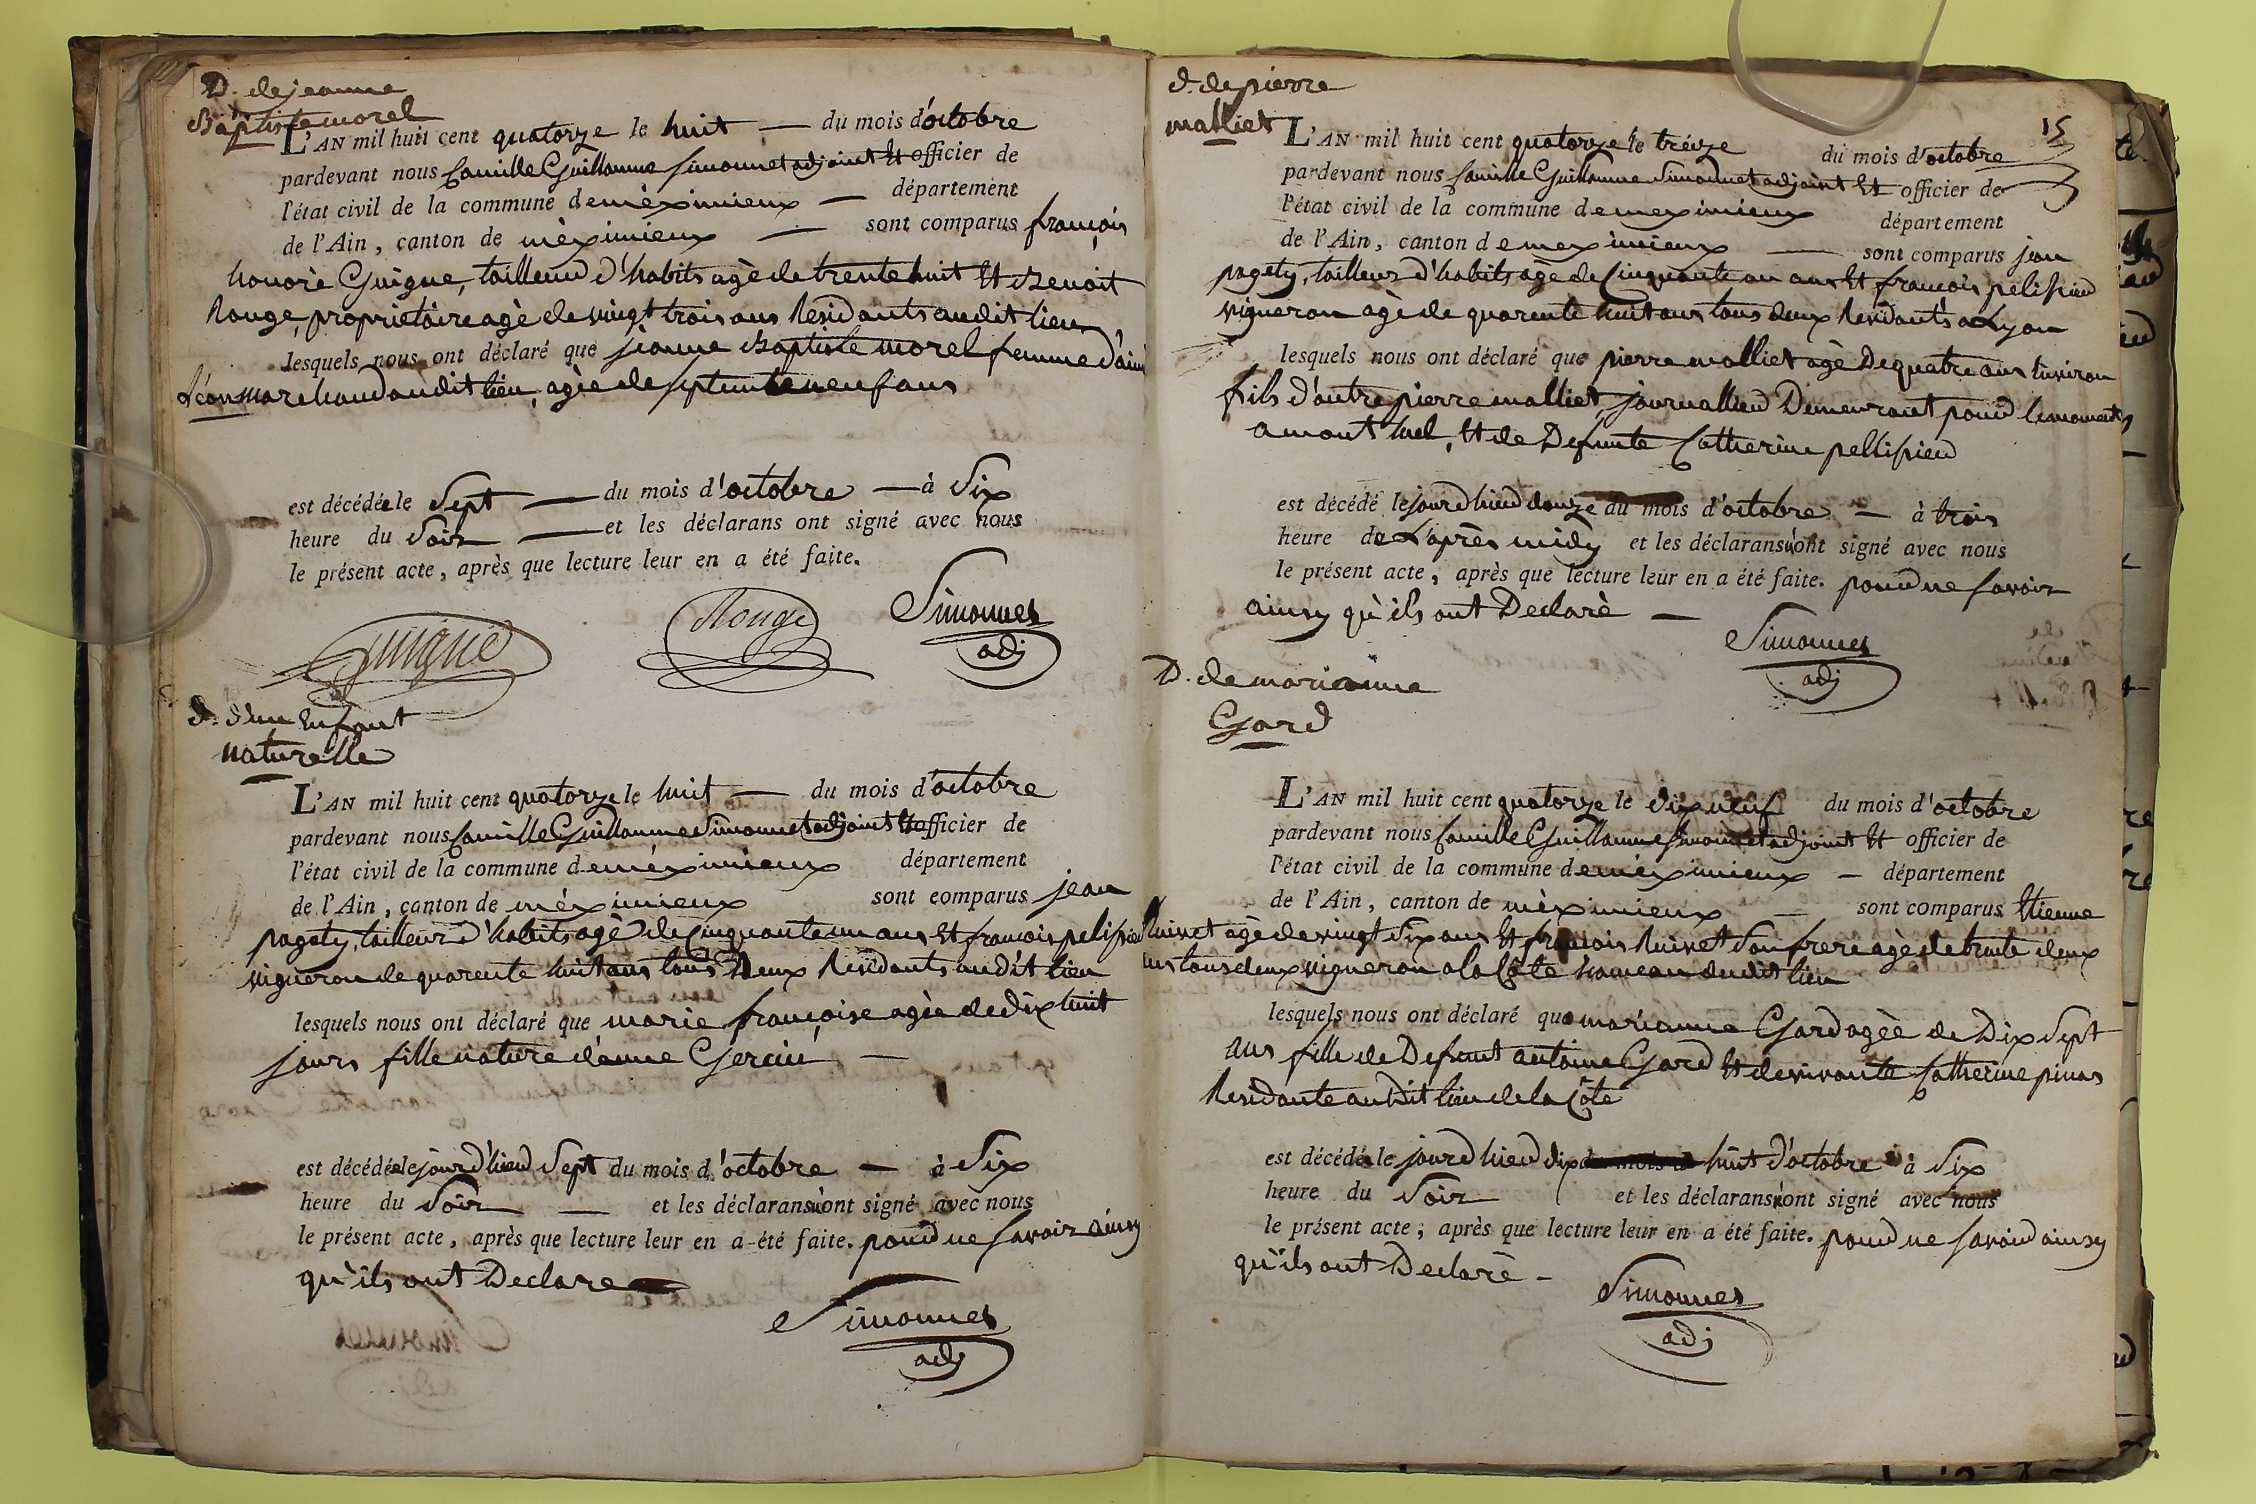 D. de jeanne
Baptiste morel
L'AN mil huit cent quatorze le huit — du mois d'octobre
pardevant nous Camille Guillaume Simonnet adjoint Et officier de
l'état civil de la commune de mèximieux — département
de l'Ain, canton de mèximieux — sont comparus françois
honoré Guigue, tailleur d'habits agè de trente huit Et Benoit
Rouge, propriètaire agè de vingt trois ans Residants au dit lieu
lesquels nous ont déclaré que jeanne Baptiste morel femme d'aimé
marchand au dit lieu, agèe de septente neuf ans
est décédée le Sept — du mois d'octobre — à Six
heure du Soir — et les déclarans ont signé avec nous
le présent acte, après que lecture leur en a été faite.
Guigue Rouge Simonnet
adj
d. d'un Enfant
naturelle
L'AN mil huit cent quatorze le huit — du mois d'octobre
pardevant nous Camille Guillaume Simonnet adjoint Et officier de
l'état civil de la commune de mèximieux département
de l'Ain, canton de mèximieux sont comparus jean
pagety, tailleur d'habits agè de Cinquante un ans Et françois pelissieu
vigneron de quarente huit ans tous Deux Residants au dit lieu
lesquels nous ont déclaré que marie françoise agèe de dix huit
jours fille nature d'anne —
est décédée le jourd'hieu Sept du mois d'octobre — à Six
heure du Soir — et les déclarans n'ont signé avec nous
le présent acte, après que lecture leur en a été faite. pour ne Savoir ainsy
qu'ils ont Declare
Simonnet
adj
d. de pierre
malliet
15
L'AN mil huit cent quatorze le treize du mois d'octobre
pardevant nous Camille Guillaume Simonnet adjoint Et officier de
l'état civil de la commune de meximieux département
de l'Ain, canton de meximieux — sont comparus jean
pagety, tailleur d'habits agè de Cinquante un ans Et françois pelissieu
vigneron agè de quarente huit ans tous deux Residants
lesquels nous ont déclaré que pierre malliet agè De quatre ans Environ
fils d'autre pierre malliet, journallier Demeurant pour le moment
a mont luel, Et de Defunte Catherine pellissieu
est décédé le jourd'hieu douze du mois d'octobre — à trois
heure de L'après midy et les déclarans n'ont signé avec nous
le présent acte, après que lecture leur en a été faite. pour ne Savoir
ainsy qu'ils ont Declarè —
Simonnet
adj
D. de marianne
Gard
L'AN mil huit cent quatorze le dix neuf du mois d'octobre
pardevant nous Camille Guillaume Simonnet adjoint Et officier de
l'état civil de la commune de mèximieux — département
de l'Ain, canton de mèximieux — sont comparus Etienne
Ruivet agè de vingt Six ans Et françois Ruivet Son frere agè de trente deux
ans tous deux vigneron a la Côte hameau du dit lieu
lesquels nous ont déclaré que marianne Gard agèe de Dix Sept
ans fille de Defunt antoine Gard Et de vivante Catherine pinas
Residante au Dit lieu de la Côte
est décédée le jourd'hieu dix du mois d huit d'octobre à Six
heure du Soir et les déclarans n'ont signé avec nous
le présent acte; après que lecture leur en a été faite. pour ne Savoir ainsy
qu'ils ont Declarè —
Simonnet
adj